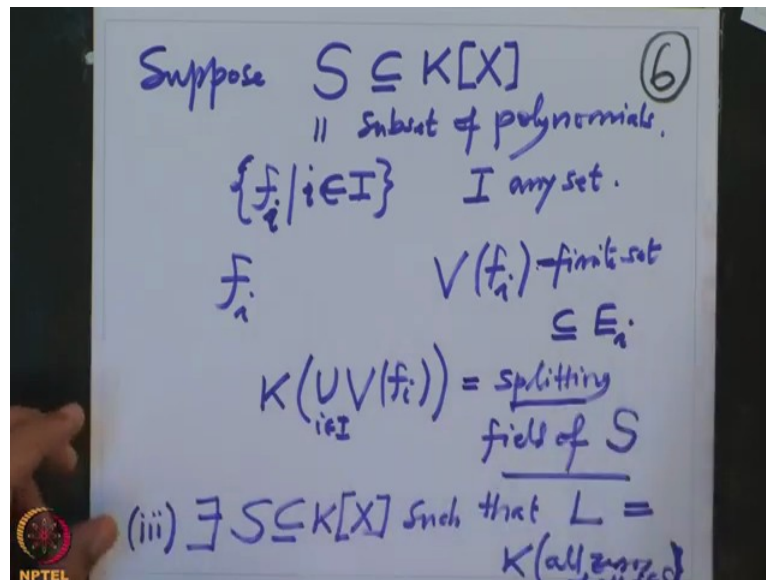 Suppose S ⊆ K[X] 6
|| subset of polynomials.
{f_i | i ∈ I} I any set.
f_i V(f_i) - finite set
⊆ E_i
K(∪ V(f_i)) = splitting
i∈I
field of S
(iii) ∃ S ⊆ K[X] such that L =
K(all zeros
NPTEL